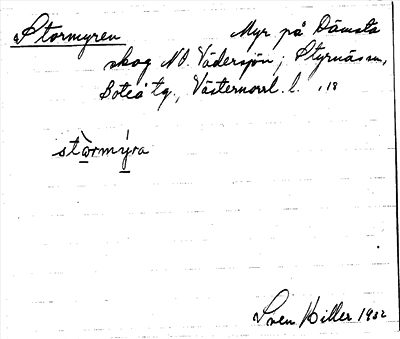 Stormyren Myr på Dämsta
skog NO. Vädersjön; Styrnäs sn,
Boteå tg., Västernorrl. l. ,18
stòrmýra
Sven Hiller 1932